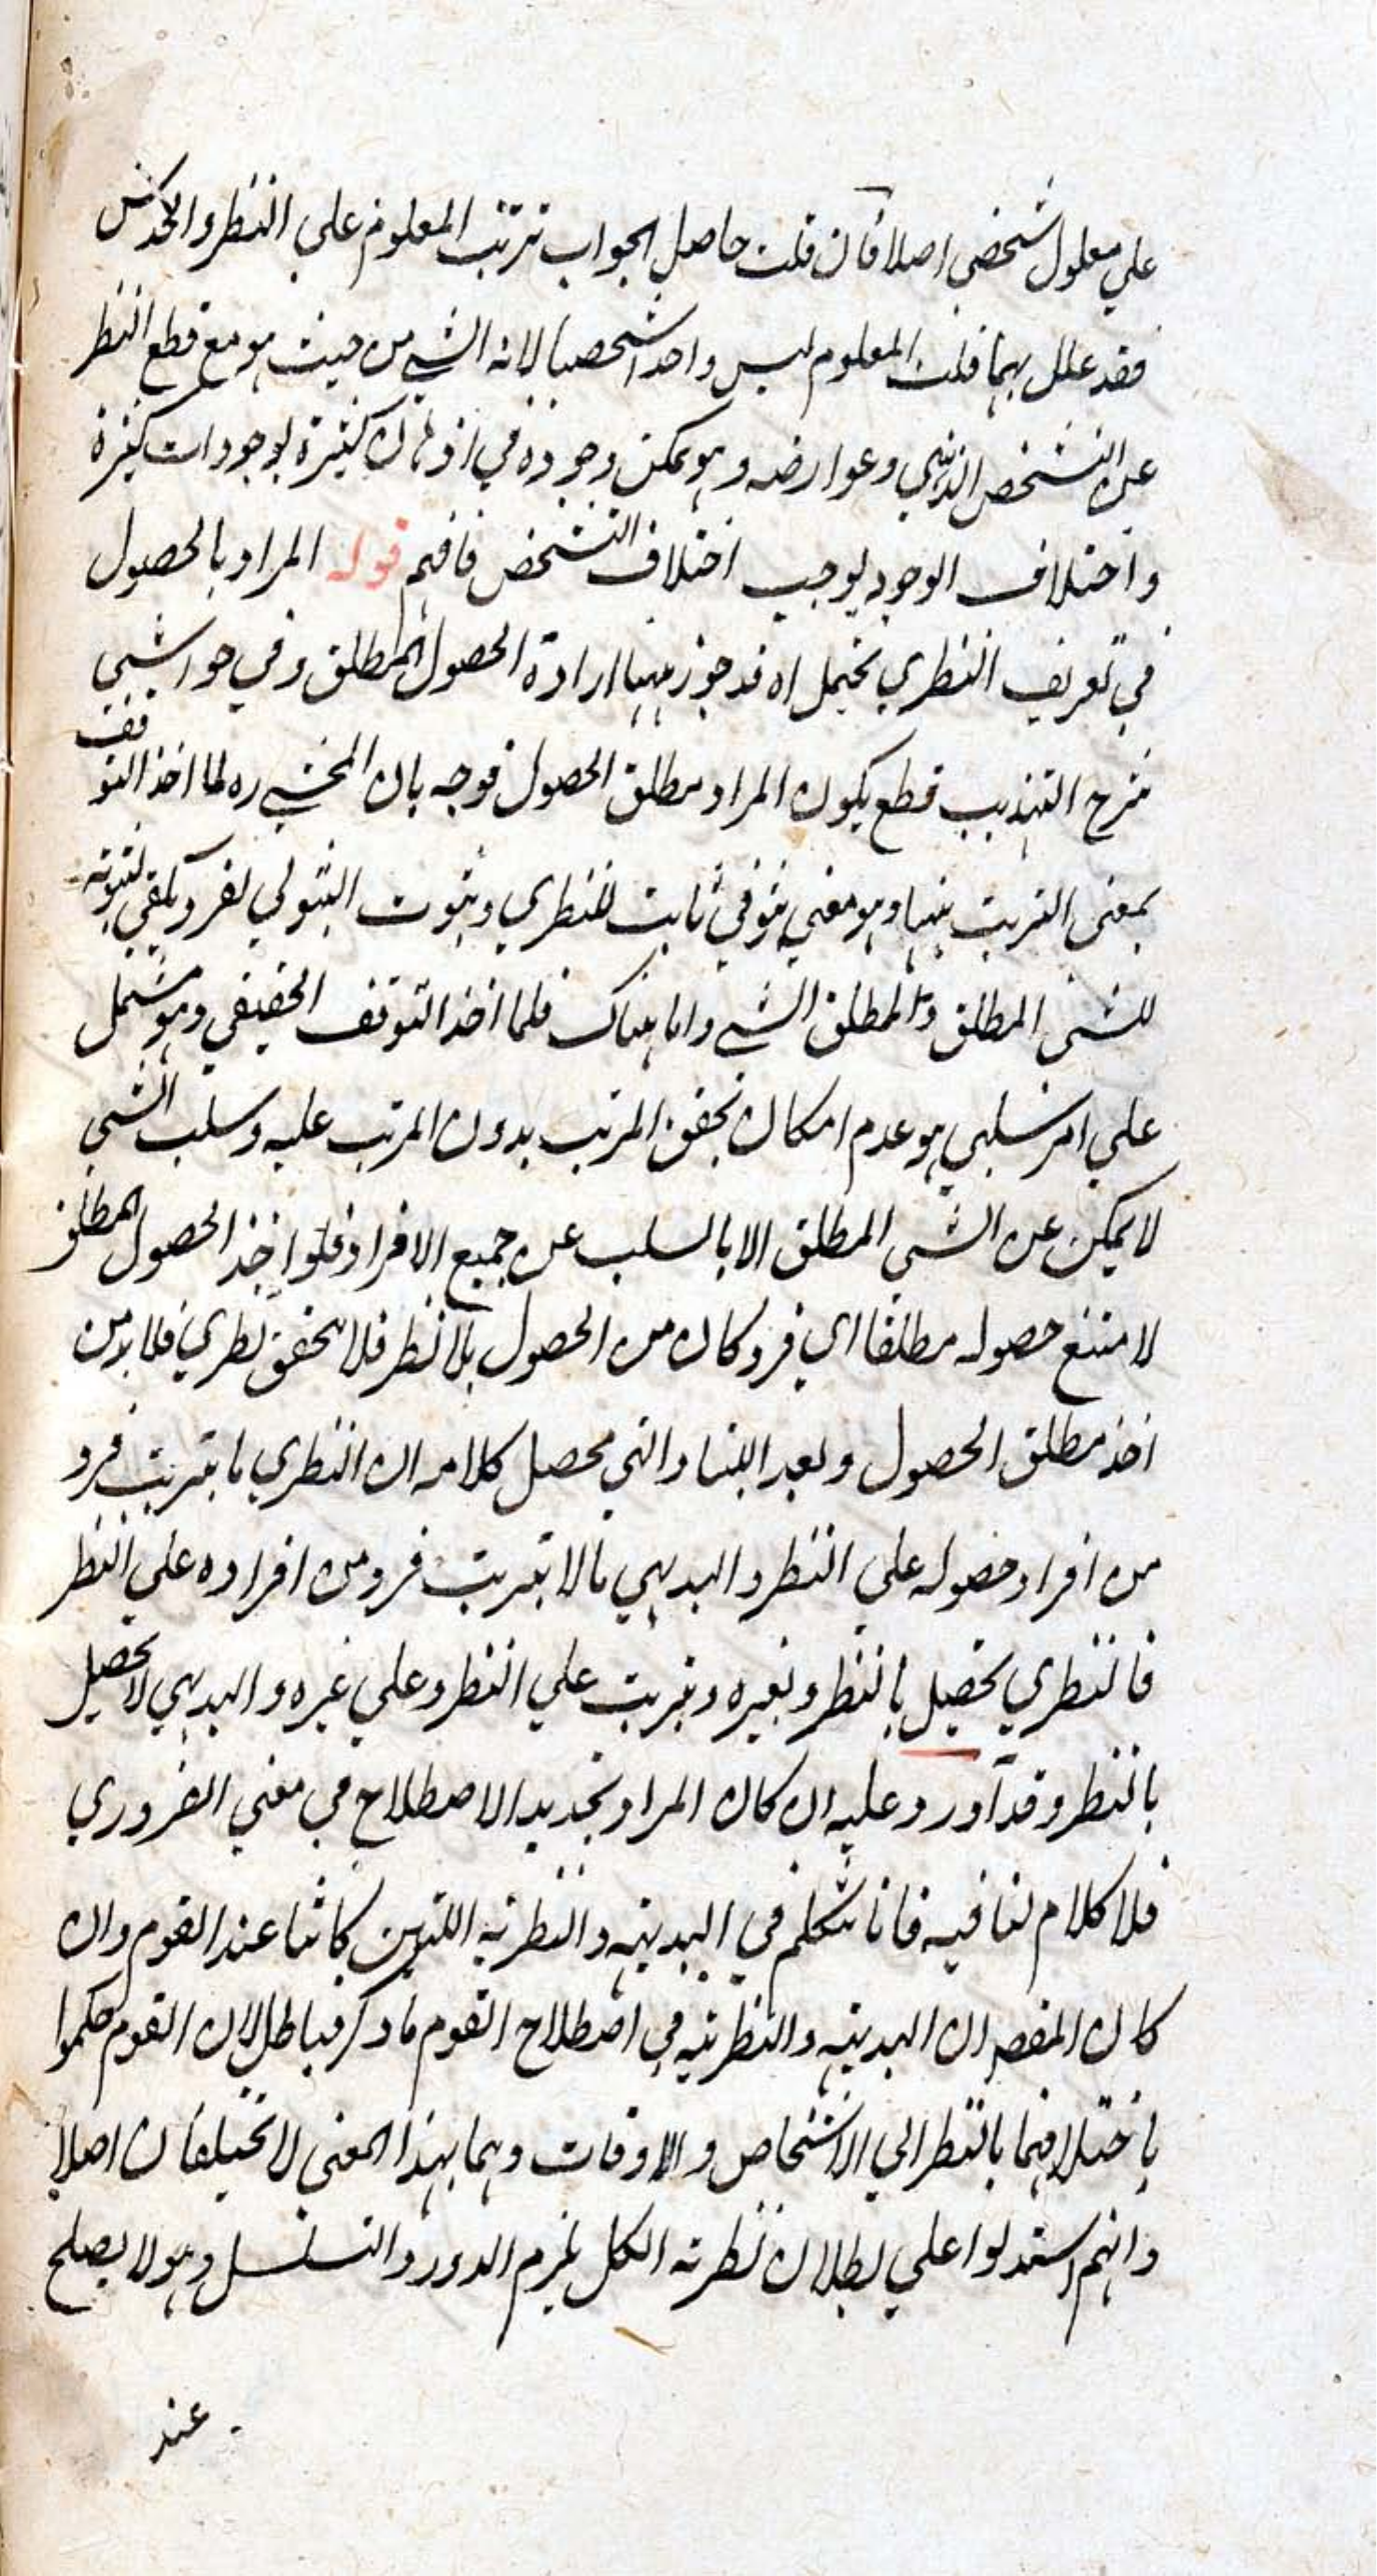 علي معلول شخصي اصلا فان قلت حاصل الجواب ترتب المعلوم علي النظر والحدس
فقد علل بهما قلت المعلوم ليس واحدا شخصيا لانه الشي من حيث هو مع قطع النظر
عن التشخص الذهني وعوارضه وهو يمكن وجوده في اذهان كثيرة بوجودات كثيرة
واختلاف الوجود يوجب اختلاف التشخص فافهم قوله المراد بالحصول
في تعريف النظري يحتمل اه قد جوز ههنا ارادة الحصول المطلق وفي حواشي
شرح التهذيب قطع بكون المراد مطلق الحصول فوجه بان المحشي ره لما اخذ التوقف
بمعنى الترتب ههنا وهو معني ثبوتي ثابت للنظري وثبوت الثبوتي لفرد يكفي لثبوته
للشي المطلق ولمطلق الشي واما هناك فلما اخذ التوقف الحقيقي وهو مشتمل
علي امر سلبي هو عدم امكان تحقق المرتب بدون المرتب عليه وسلب الشي
لا يمكن عن الشي المطلق الا بالسلب عن جميع الافراد فلو اخذ الحصول المطلق
لامتنع حصوله مطلقا اي فرد كان من الحصول بلا نظر فلا يتحقق نظري فلا بد من
اخذ مطلق الحصول وبعد اللتيا والتي محصل كلامه ان النظري ما يترتب فرد
من افراد حصوله علي النظر والبديهي ما لا يترتب فرد من افراده علي النظر
فالنظري يحصل بالنظر وبغيره ويترتب علي النظر وعلي غيره والبديهي لا يحصل
بالنظر وقد اورد عليه ان كان المراد تجديد الاصطلاح في معني الضروري
فلا كلام لنا فيه فانا نتكلم في البديهية والنظرية اللتين كانتا عند القوم وان
كان المقصد ان البديهية والنظرية في اصطلاح القوم ما ذكر فباطل لان القوم حكموا
باختلافهما بالنظر الي الاشخاص والاوقات وهما بهذا المعني لا تختلفان اصلا
وانهم استدلوا علي بطلان نظرية الكل بلزوم الدور والتسلسل وهو لا يصلح
عند